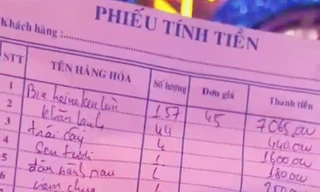 PHIẾU TÍNH TIỀN
Khách hàng :
STT TÊN HÀNG HÓA Số lượng Đơn giá Thành tiền
1 Bia heineken lùn 157 45 7065,00
2 khăn lạnh 44 440,00
3 trái cây 4 1600,00
4 1 180,00
5 1
6 1